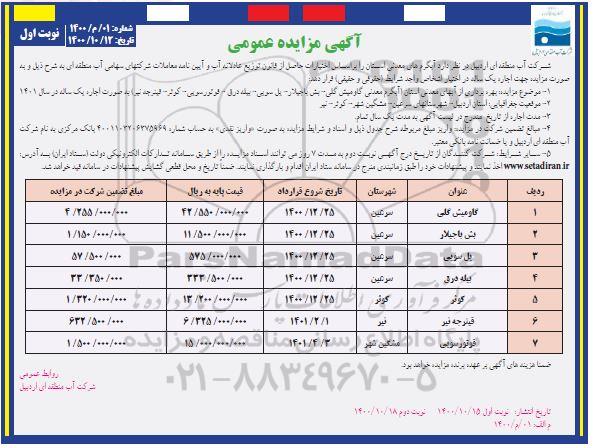 شماره: ۰۱/م/۱۴۰۰
تاریخ: ۱۴۰۰/۱۰/۱۲
نوبت اول
آگهی مزایده عمومی
شرکت آب منطقه ای اردبیل در نظر دارد آبگرم های معدنی استان را براساس اختیارات حاصل از قانون توزیع عادلانه آب و آیین نامه معاملات شرکتهای سهامی آب منطقه ای به شرح ذیل و به
صورت مزایده جهت اجاره یک ساله در اختیار اشخاص واجد شرایط (حقوقی و حقیقی) قرار دهد:
۱- موضوع مزایده: بهره برداری از آبهای معدنی استان (آبگرم معدنی گاومیش گلی- بش باجیلار- پل سویی- بیله درق – قوتورسویی- کوثر- قینرجه نیر) به صورت اجاره یک ساله در سال ۱۴۰۱
۲- موقعیت جغرافیایی: استان اردبیل- شهرستانهای سرعین- مشگین شهر- کوثر- نیر
۳- مدت اجاره از تاریخ مندرج در لیست آگهی به مدت یک سال تمام.
۴- مبالغ تضمین شرکت در مزایده: واریز مبلغ مربوطه شرح جدول ذیل و اسناد و شرایط مزایده به صورت «واریز نقدی» به حساب شماره ۴۰۰۱۱۰۳۲۰۶۳۷۵۹۶۹ بانک مرکزی به نام شرکت
آب منطقه ای اردبیل و یا ضمانت نامه بانکی معتبر.
۵- سایر شرایط: شرکت کنندگان از تاریخ درج آگهی نوبت دوم به مدت ۷ روز می توانند اسناد مزایده را از طریق سامانه تدارکات الکترونیکی دولت (ستاد ایران) به آدرس:
www.setadiran.ir اخذ نمایند و پیشنهادات خود را طبق زمانبندی مندرج در سامانه ستاد ایران اقدام و بارگذاری نمایند. ضمنا تاریخ و محل قطعی گشایش پیشنهادات در سامانه قید خواهد شد.
ردیف عنوان شهرستان تاریخ شروع قرارداد قیمت پایه به ریال مبالغ تضمین شرکت در مزایده
۱ گاومیش گلی سرعین ۱۴۰۰/۱۲/۲۵ ۴۲/۵۵۰/۰۰۰/۰۰۰ ۴/۲۵۵/۰۰۰/۰۰۰
۲ بش باجیلار سرعین ۱۴۰۰/۱۲/۲۵ ۱۱/۵۰۰/۰۰۰/۰۰۰ ۱/۱۵۰/۰۰۰/۰۰۰
۳ پل سویی سرعین ۱۴۰۰/۱۲/۲۵ ۵۷۵/۰۰۰/۰۰۰ ۵۷/۵۰۰/۰۰۰
۴ بیله درق سرعین ۱۴۰۰/۱۲/۲۵ ۳۳۳/۵۰۰/۰۰۰ ۳۳/۳۵۰/۰۰۰
۵ کوثر کوثر ۱۴۰۰/۱۲/۲۵ ۱۳/۲۰۰/۰۰۰/۰۰۰ ۱/۳۲۰/۰۰۰/۰۰۰
۶ قینرجه نیر نیر ۱۴۰۱/۲/۱ ۶/۳۲۵/۰۰۰/۰۰۰ ۶۳۲/۵۰۰/۰۰۰
۷ قوتورسویی مشگین شهر ۱۴۰۱/۴/۳ ۱۵/۰۰۰/۰۰۰/۰۰۰ ۱/۵۰۰/۰۰۰/۰۰۰
ParsNamadData
پایگاه اطلاع رسانی مناقصه و مزایده
۰۲۱-۸۸۳۴۹۶۷۰-۵
ضمنا هزینه های آگهی بر عهده برنده مزایده خواهد بود.
روابط عمومی
شرکت آب منطقه ای اردبیل
تاریخ انتشار: نوبت اول ۱۴۰۰/۱۰/۱۵ نوبت دوم ۱۴۰۰/۱۰/۱۸
م الف: ۰۱/م/۱۴۰۰